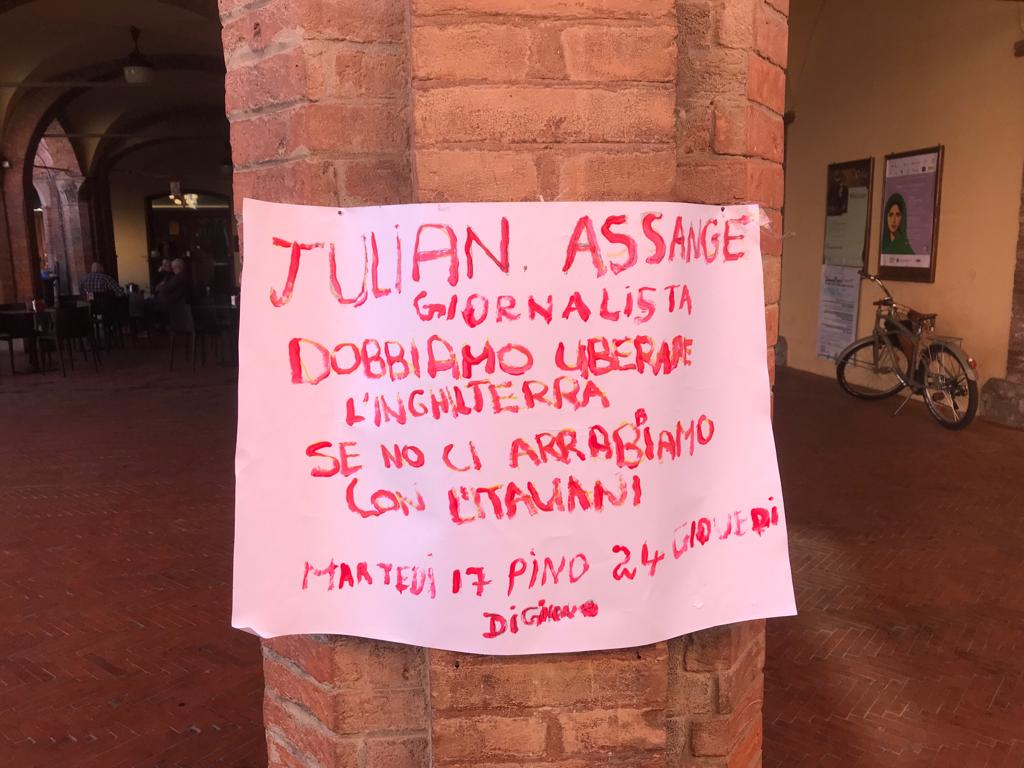 JULIAN. ASSANGE
GIORNALISTA
DOBBIAMO LIBERARE
L'INGHILTERRA
SE NO CI ARRABBIAMO
CON L'ITALIANI
MARTEDì 17 PINO 24 GIOVEDì
DIGIUNO